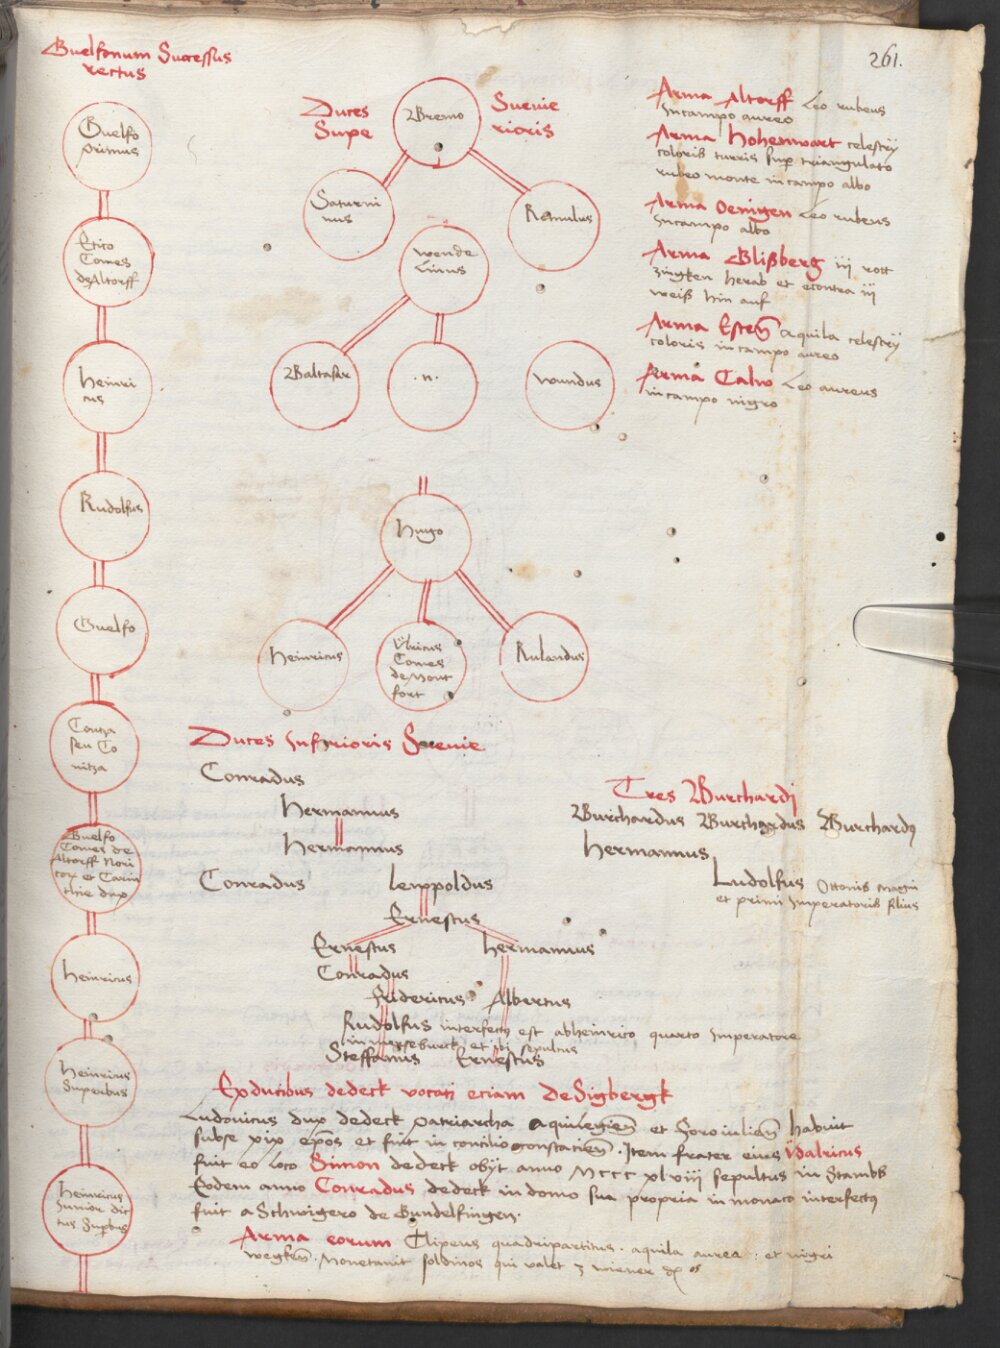 261.
Guelfonum Successus
rectus
Guelfo
primus
Etico
Comes
de Altorff
Heinri
cus
Rudolfus
Guelfo
Contza
seu Co
nitza
Guelfo
Comes de
Altorff Nori
cox et Carin
thie dux
Heinricus
Heinricus
Superbus
Heinricus
Junior dic
tus Supbus
Duces Suevie
Supe rioris
Bremo
Saturni
nus
Ramulus
Wende
linus
Baltasar
.n.
Wundus
Hugo
Heinricus
Ulricus
Comes
de Mont
fort
Rulandus
Arma Altorff Leo rubeus
in campo aureo
Arma Hohenwart celestry
coloris turris sup triangulato
rubeo monte in campo albo
Arma Oeningen Leo rubeus
in campo albo
Arma Blißberg iij rott
zingken herab et econtra iij
weiß hin auf
Arma Esten aquila celestry
coloris in campo aureo
Arma Calw Leo aureus
in campo nigro
Duces Inferioris Suevie
Conradus
Hermannus
Hermannus
Conradus Leuppoldus
Ernestus
Ernestus Hermannus
Conradus
Fridericus Albertus
Rudolfus interfectus est ab heinrico quarto Imperatore
in merseburck et ibi sepultus
Steffanus Ernestus
Tres Burchardi
Burchardus Burchardus Burchardus
Hermannus
Ludolfus Ottonis magni
et primi Imperatoris filius
Ex ducibus de deck vocati eciam de Sigbergk
Ludovicus dux de deck patriarcha aquilegien et Foroiulien habuit
subse xix epos et fuit in concilio constancien. Item frater eius Udalricus
fuit eo loco Simon de deck obijt anno Mccc xlviij sepultus in Stambs
Eodem anno Conradus de deck in domo sua propria in monaco interfectus
fuit a Schwigero de Gundelfingen.
Arma eorum Clipeus quadripartitus. aquila aurea. et nigri
wegken. Monetavit soldinos qui valet 3 wiener